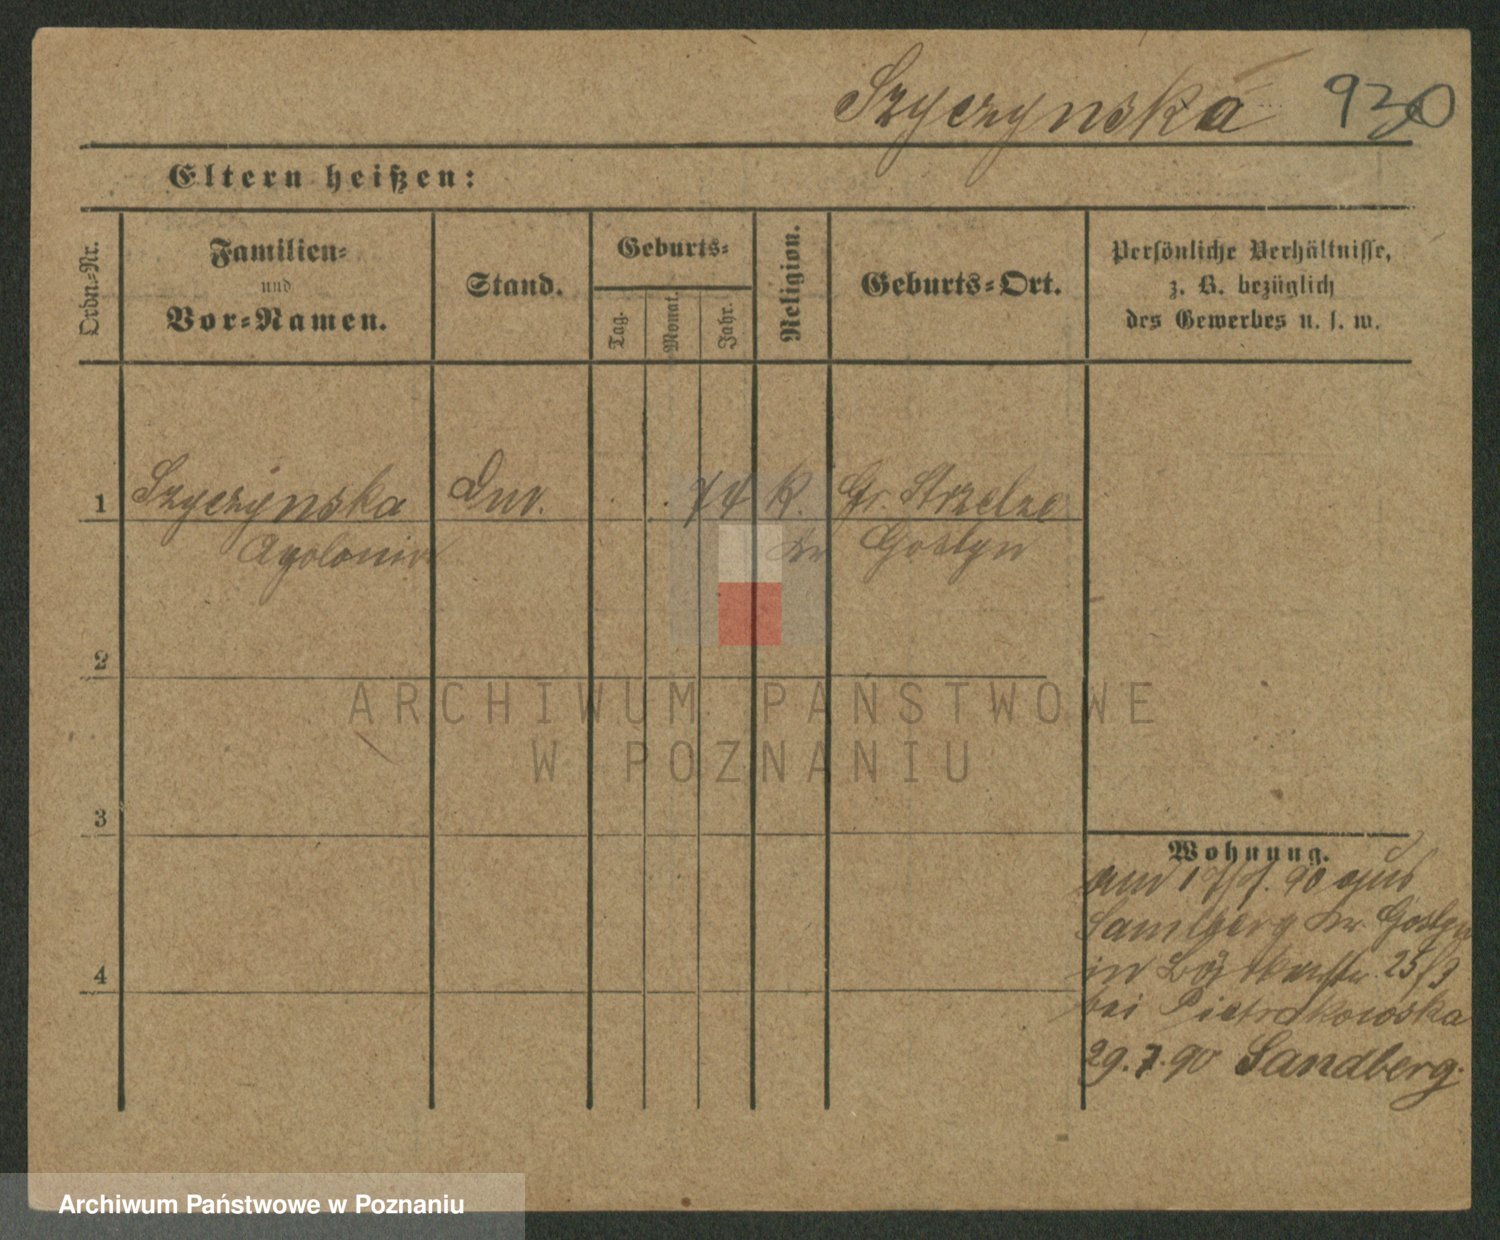 Szyczynska 930
Eltern heißen:
Ordn.-Nr.
Familien-
und
Vor-Namen.
Stand.
Geburts-
Tag.
Monat.
Jahr.
Religion.
Geburts-Ort.
Persönliche Verhältnisse,
z. B. bezüglich
des Gewerbes u. s. w.
1 Szyczynska 74 K. Gr. Strzelze
Apolonia Kr Gostyn
2
3
4
Wohnung.
90 aus
Sandberg Kr. Gostyn
in 25/9
bei Pietrakowska
29.7.90 Sandberg.
ARCHIWUM PAŃSTWOWE
W POZNANIU
Archiwum Państwowe w Poznaniu